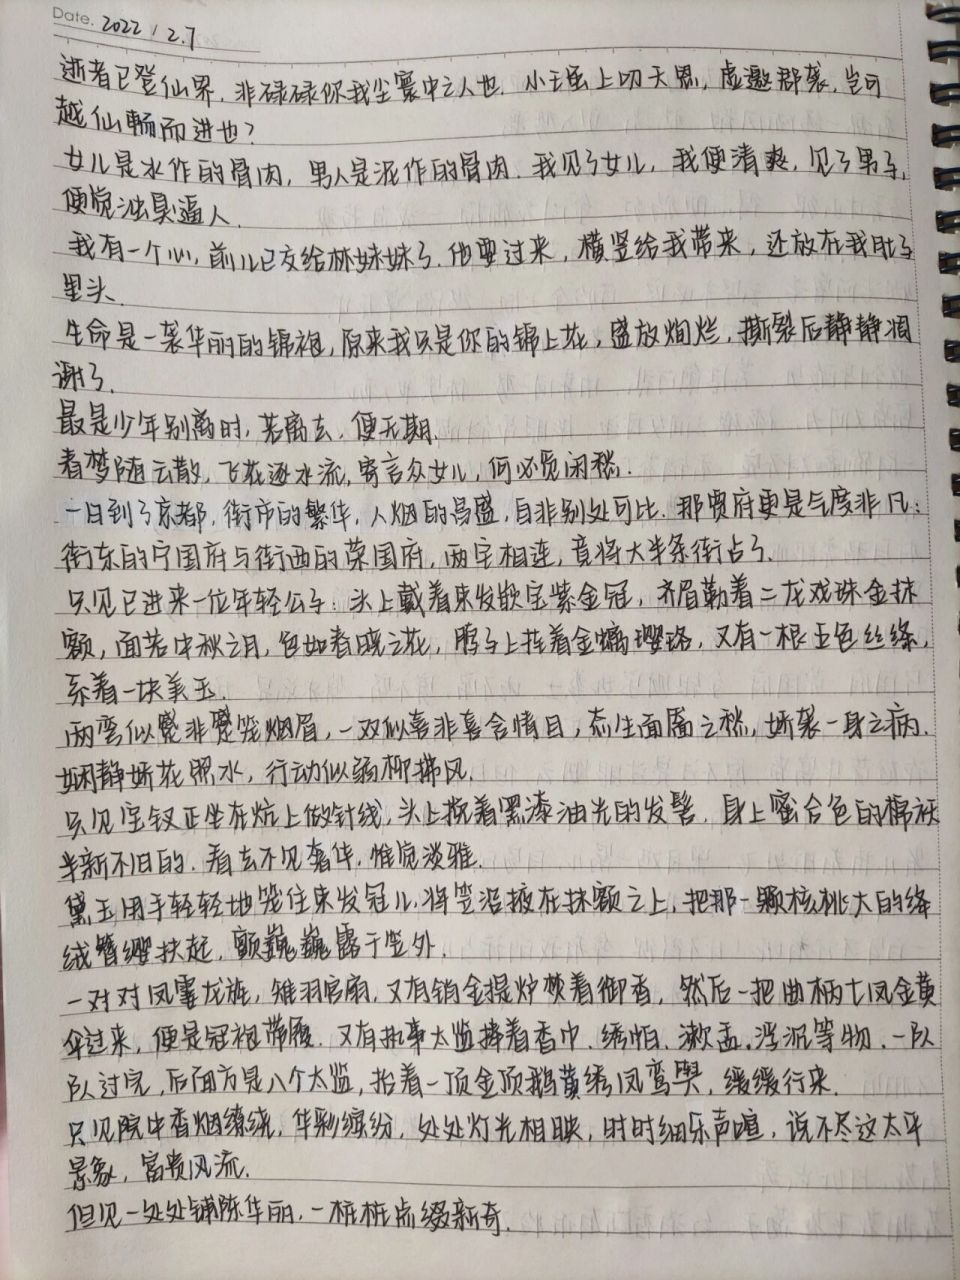 Date. 2022 / 2.7
逝者已登仙界,非碌碌你我尘寰中之人也. 小王虽上叨天恩,虚邀郡袭,岂可
越仙輀而进也?
女儿是水作的骨肉,男人是泥作的骨肉. 我见了女儿,我便清爽,见了男子,
便觉浊臭逼人.
我有一个心,前儿已交给林妹妹了. 他要过来,横竖给我带来,还放在我肚子
里头.
生命是一袭华丽的锦袍,原来我只是你的锦上花,盛放绚烂,撕裂后静静凋
谢了.
最是少年别离时,若离去,便无期.
春梦随云散,飞花逐水流,寄言众女儿,何必觅闲愁.
一日到了京都,街市的繁华,人烟的昌盛,自非别处可比. 那贾府更是气度非凡:
街东的宁国府与街西的荣国府,两宅相连,竟将大半条街占了.
只见已进来一位年轻公子:头上戴着束发嵌宝紫金冠,齐眉勒着二龙戏珠金抹
额,面若中秋之月,色如春晓之花,脖子上挂着金螭璎珞,又有一根五色丝绦,
系着一块美玉.
两弯似蹙非蹙笼烟眉,一双似喜非喜含情目,态生两靥之愁,娇袭一身之病.
娴静娇花照水,行动似弱柳拂风.
只见宝钗正坐在炕上做针线,头上挽着黑漆油光的发髻,身上蜜合色的棉袄
半新不旧的. 看去不见奢华,惟觉淡雅.
黛玉用手轻轻地笼住束发冠儿,将笠沿掖在抹额之上,把那一颗核桃大的绛
绒簪缨扶起,颤巍巍露于笠外.
一对对凤翣龙旌,雉羽宫扇,又有销金提炉焚着御香,然后一把曲柄七凤金黄
伞过来,便是冠袍带履. 又有执事太监捧着香巾、绣帕、漱盂、浮沉等物. 一队
队过完,后面方是八个太监,抬着一顶金顶鹅黄绣凤鸾舆,缓缓行来.
只见院中香烟缭绕,华彩缤纷,处处灯光相映,时时细乐声喧,说不尽这太平
景象,富贵风流.
但见一处处铺陈华丽,一桩桩点缀新奇.